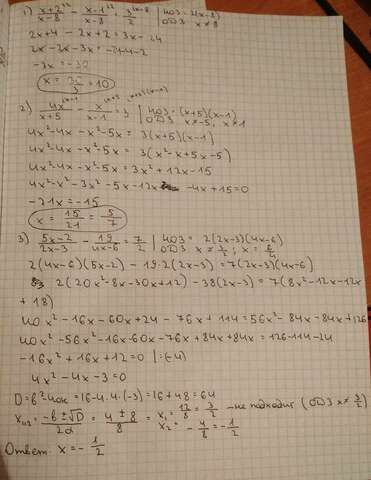 1) (x+2)/(x-8) - (x-1)/(x-8) = 3/2 | НОЗ = 2(x-8) ОДЗ x ≠ 8
2x+4 - 2x+2 = 3x - 24
2x - 2x - 3x = -24-4-2
-3x = -30
x = 30/3 = 10
2) 4x/(x+5) - x/(x-1) = 3 | НОЗ = (x+5)(x-1) ОДЗ x ≠ -5; x ≠ 1
4x²-4x - x²-5x = 3(x+5)(x-1)
4x²-4x - x²-5x = 3(x²-x+5x-5)
4x²-4x - x²-5x = 3x²+12x-15
4x²-x²-3x²-5x-12x -4x+15=0
-21x = -15
x = 15/21 = 5/7
3) (5x-2)/(2x-3) - 19/(4x-6) = 7/2 | НОЗ = 2(2x-3)(4x-6)
2(4x-6)(5x-2) - 19·2(2x-3) = 7(2x-3)(4x-6)
2(20x²-8x-30x+12) - 38(2x-3) = 7(8x²-12x-12x
+18)
40x²-16x-60x+24-76x+114=56x²-84x-84x+126
40x²-56x²-16x-60x-76x+84x+84x=126-114-24
-16x²+16x+12=0 |:(-4)
4x²-4x-3=0
D=b²-4ac=16-4·4·(-3)=16+48=64
x₁,₂ = (-b±√D)/2a = (4±8)/8 = x₁ = 12/8 = 3/2 - не подходит (ОДЗ x ≠ 3/2)
x₂ = -4/8 = -1/2
Ответ: x = -1/2